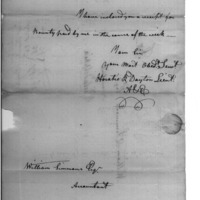 I have inclosed you a receipt for
bounty paid by me in the course of the week —
I am Sir
Your Most Obdt Servt
Horatio G Dayton Lieut
William Simmons Esqr
Accountant